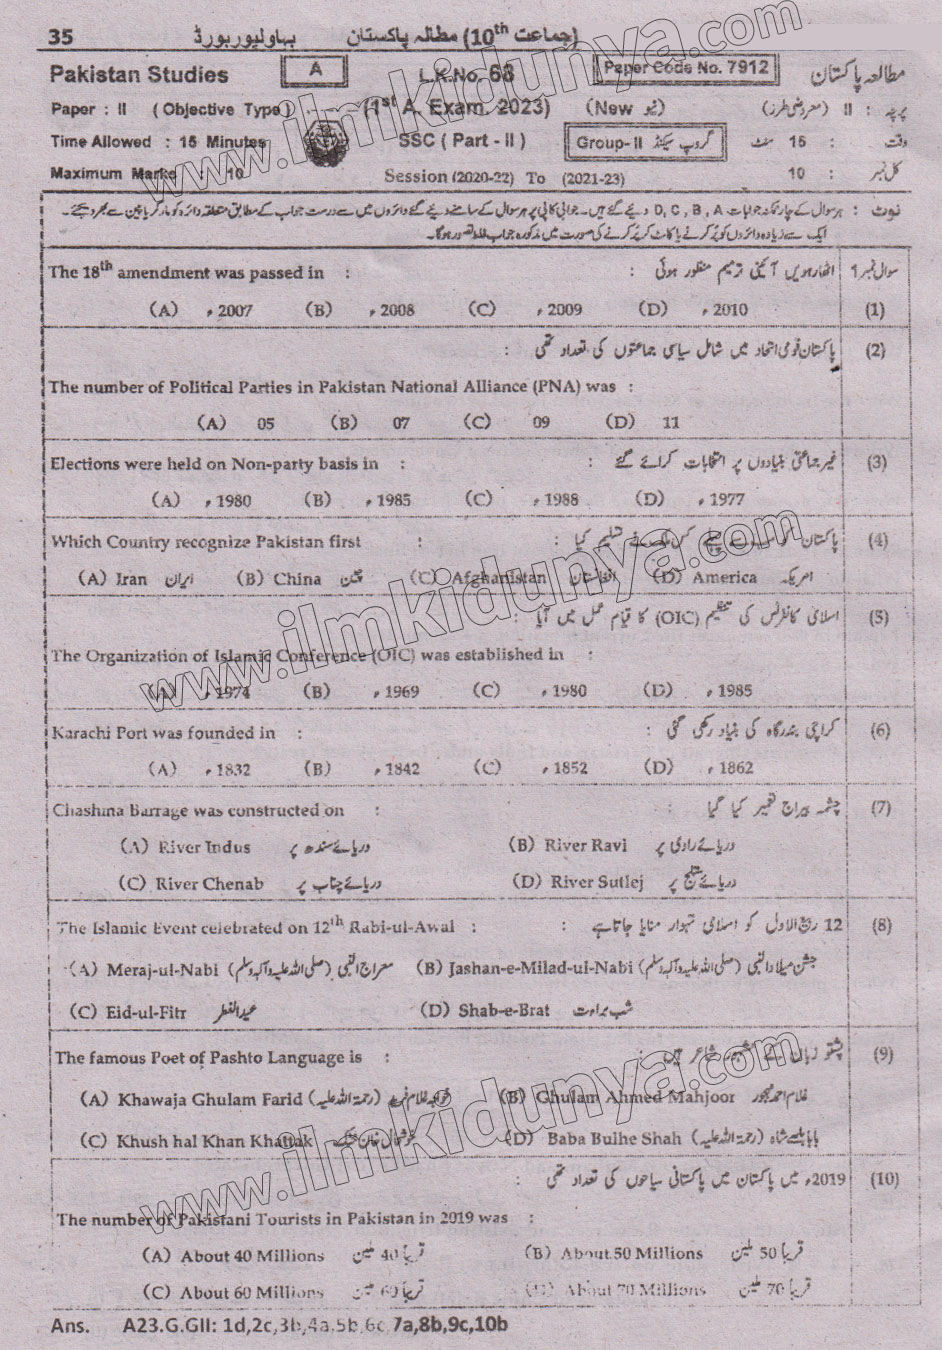 35 بہاولپوربورڈ مطالعہ پاکستان (جماعت 10th)
Pakistan Studies A L.K.No. 68 Paper Code No. 7912 مطالعہ پاکستان
Paper : II ( Objective Type ) (1st A. Exam. 2023) (New نیو) پرچہ : II (معروضی طرز)
Time Allowed : 15 Minutes SSC ( Part - II ) Group- II گروپ سیکنڈ وقت : 15 منٹ
Maximum Marks : 10 Session (2020-22) To (2021-23) کل نمبر : 10
نوٹ : ہر سوال کے چار ممکنہ جوابات D, C, B, A دیئے گئے ہیں۔ جوابی کاپی پر ہر سوال کے سامنے دیئے گئے دائروں میں سے درست جواب کے مطابق متعلقہ دائرہ کو مارکر یا پین سے بھر دیجئے۔
ایک سے زیادہ دائروں کو پُر کرنے یا کاٹ کر پُر کرنے کی صورت میں مذکورہ جواب غلط تصور ہوگا۔
The 18th amendment was passed in : اٹھارہویں آئینی ترمیم منظور ہوئی : سوال نمبر 1
(A) 2007ء (B) 2008ء (C) 2009ء (D) 2010ء (1)
پاکستان قومی اتحاد میں شامل سیاسی جماعتوں کی تعداد تھی : (2)
The number of Political Parties in Pakistan National Alliance (PNA) was :
(A) 05 (B) 07 (C) 09 (D) 11
Elections were held on Non-party basis in : غیر جماعتی بنیادوں پر انتخابات کرائے گئے : (3)
(A) 1980ء (B) 1985ء (C) 1988ء (D) 1977ء
Which Country recognize Pakistan first : پاکستان کو سب سے پہلے کس ملک نے تسلیم کیا : (4)
(A) Iran ایران (B) China چین (C) Afghanistan افغانستان (D) America امریکہ
اسلامی کانفرنس کی تنظیم (OIC) کا قیام عمل میں آیا : (5)
The Organization of Islamic Conference (OIC) was established in :
(A) 1974ء (B) 1969ء (C) 1980ء (D) 1985ء
Karachi Port was founded in : کراچی بندرگاہ کی بنیاد رکھی گئی : (6)
(A) 1832ء (B) 1842ء (C) 1852ء (D) 1862ء
Chashma Barrage was constructed on : چشمہ بیراج تعمیر کیا گیا : (7)
(A) River Indus دریائے سندھ پر (B) River Ravi دریائے راوی پر
(C) River Chenab دریائے چناب پر (D) River Sutlej دریائے ستلج پر
The Islamic Event celebrated on 12th Rabi-ul-Awal : 12 ربیع الاول کو اسلامی تہوار منایا جاتا ہے : (8)
(A) Meraj-ul-Nabi معراج النبی (صلی اللہ علیہ وآلہ وسلم) (B) Jashan-e-Milad-ul-Nabi جشن میلاد النبی (صلی اللہ علیہ وآلہ وسلم)
(C) Eid-ul-Fitr عیدالفطر (D) Shab-e-Brat شب برات
The famous Poet of Pashto Language is : پشتو زبان کے مشہور شاعر ہیں : (9)
(A) Khawaja Ghulam Farid خواجہ غلام فرید (رحمۃ اللہ علیہ) (B) Ghulam Ahmed Mahjoor غلام احمد مہجور
(C) Khush hal Khan Khattak خوشحال خان خٹک (D) Baba Bulhe Shah بابا بلھے شاہ (رحمۃ اللہ علیہ)
2019ء میں پاکستان میں پاکستانی سیاحوں کی تعداد تھی : (10)
The number of Pakistani Tourists in Pakistan in 2019 was :
(A) About 40 Millions قریباً 40 ملین (B) About 50 Millions قریباً 50 ملین
(C) About 60 Millions قریباً 60 ملین (D) About 70 Millions قریباً 70 ملین
Ans. A23.G.GII: 1d,2c,3b,4a,5b,6c,7a,8b,9c,10b
www.ilmkidunya.com
www.ilmkidunya.com
www.ilmkidunya.com